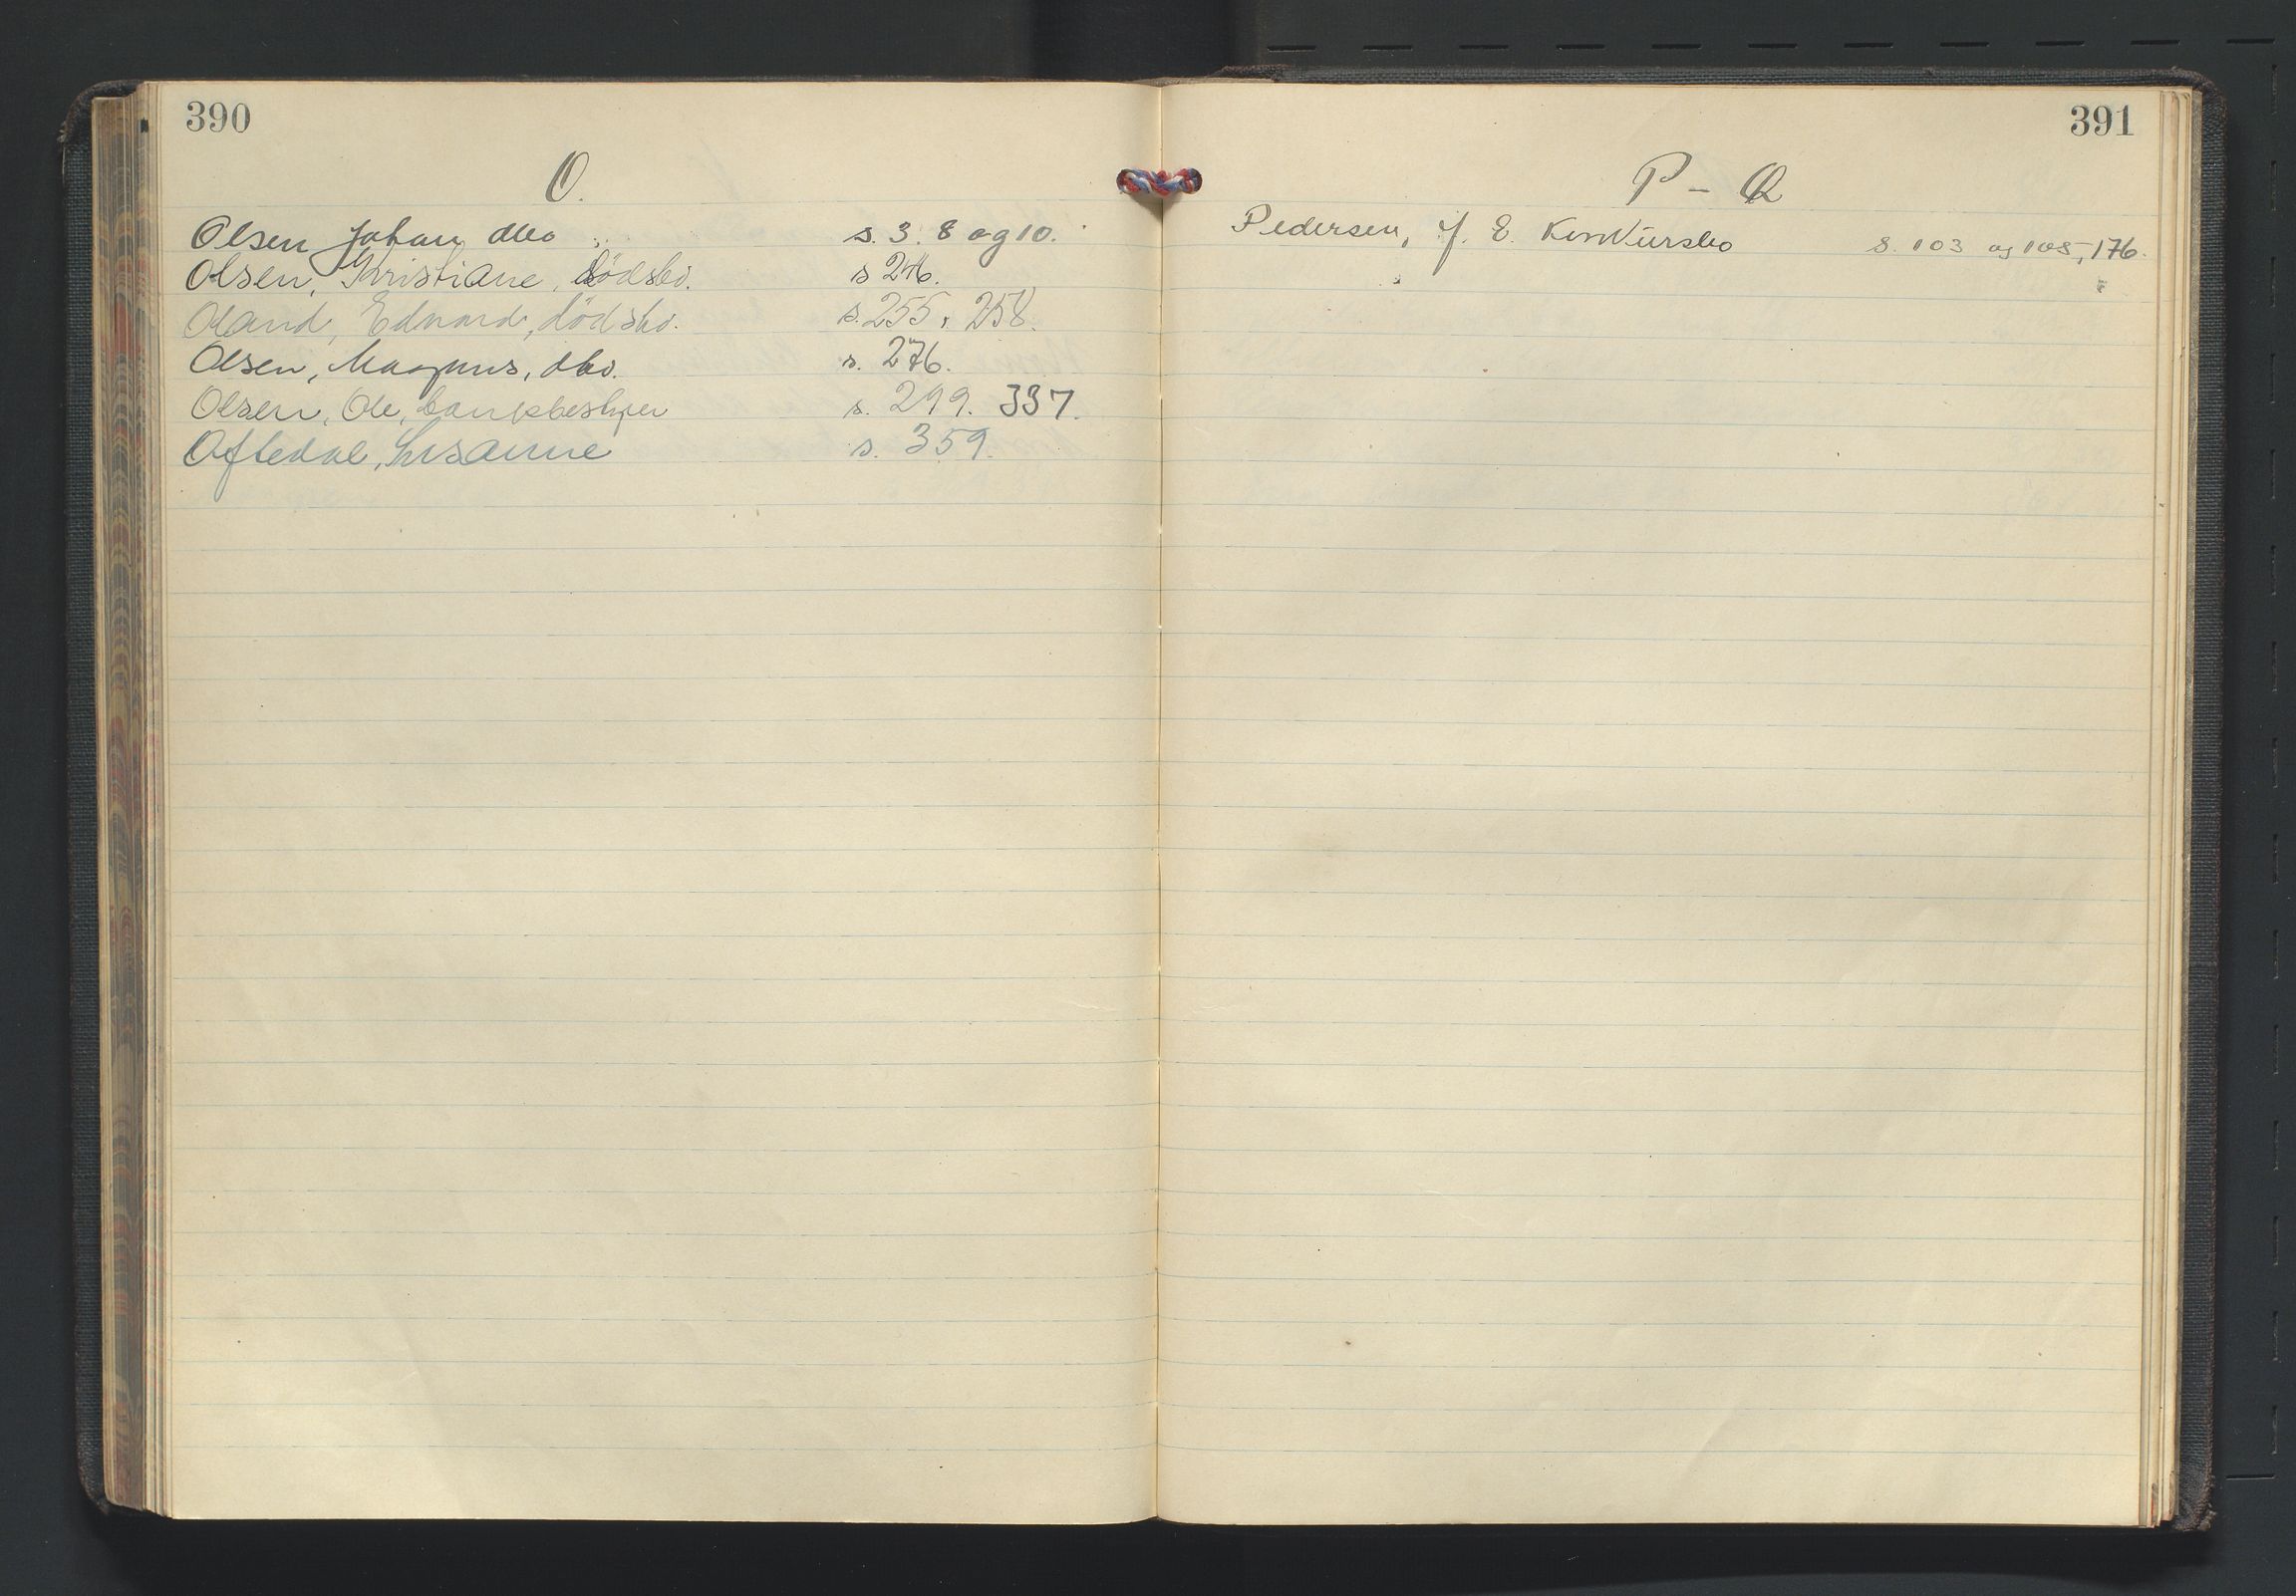 390
O.
Olsen Johan dbo s. 3. 8 og 10.
Olsen, Kristiane, dödsbo. s 246.
Oland, Edvard, dödsbo. s. 255, 258.
Olsen, Magnus, dbo. s. 276.
Olsen, Ole, bankbestyrer s. 299. 337.
Oftedal, Susanne s. 359.
391
P - Q
Pedersen, J. E. Konkürsbo s. 103 og 105, 176.